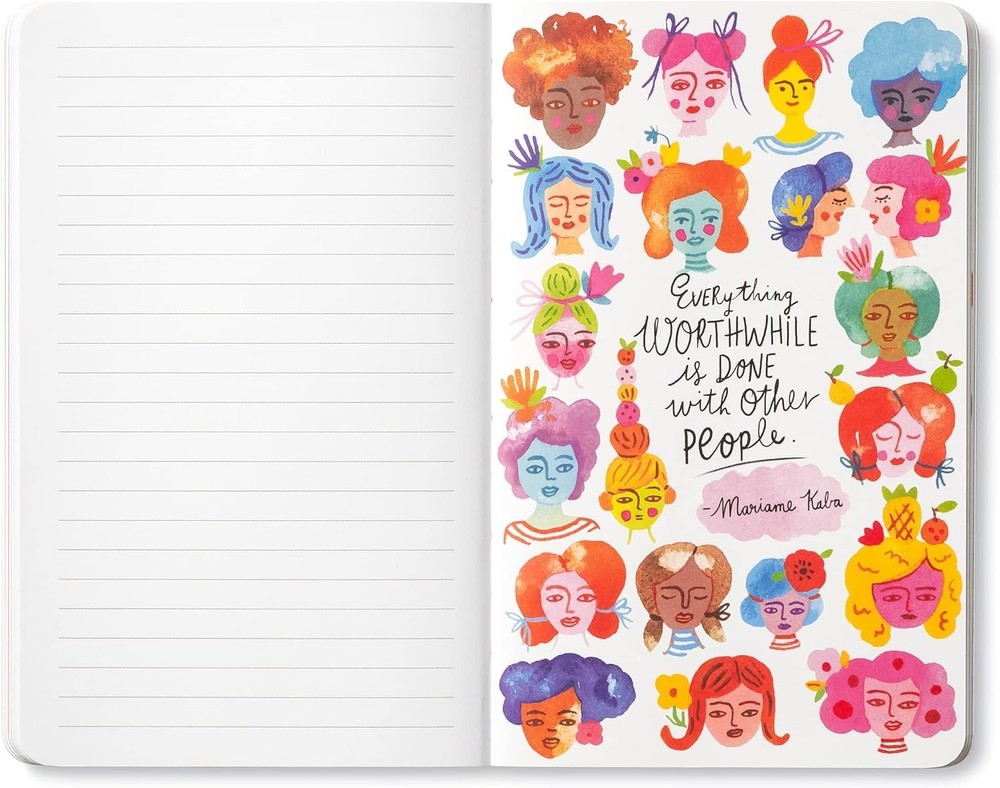 EVERything
WORTHWHILE
is DONE
with other
PEOPLE.
-Mariame Kaba